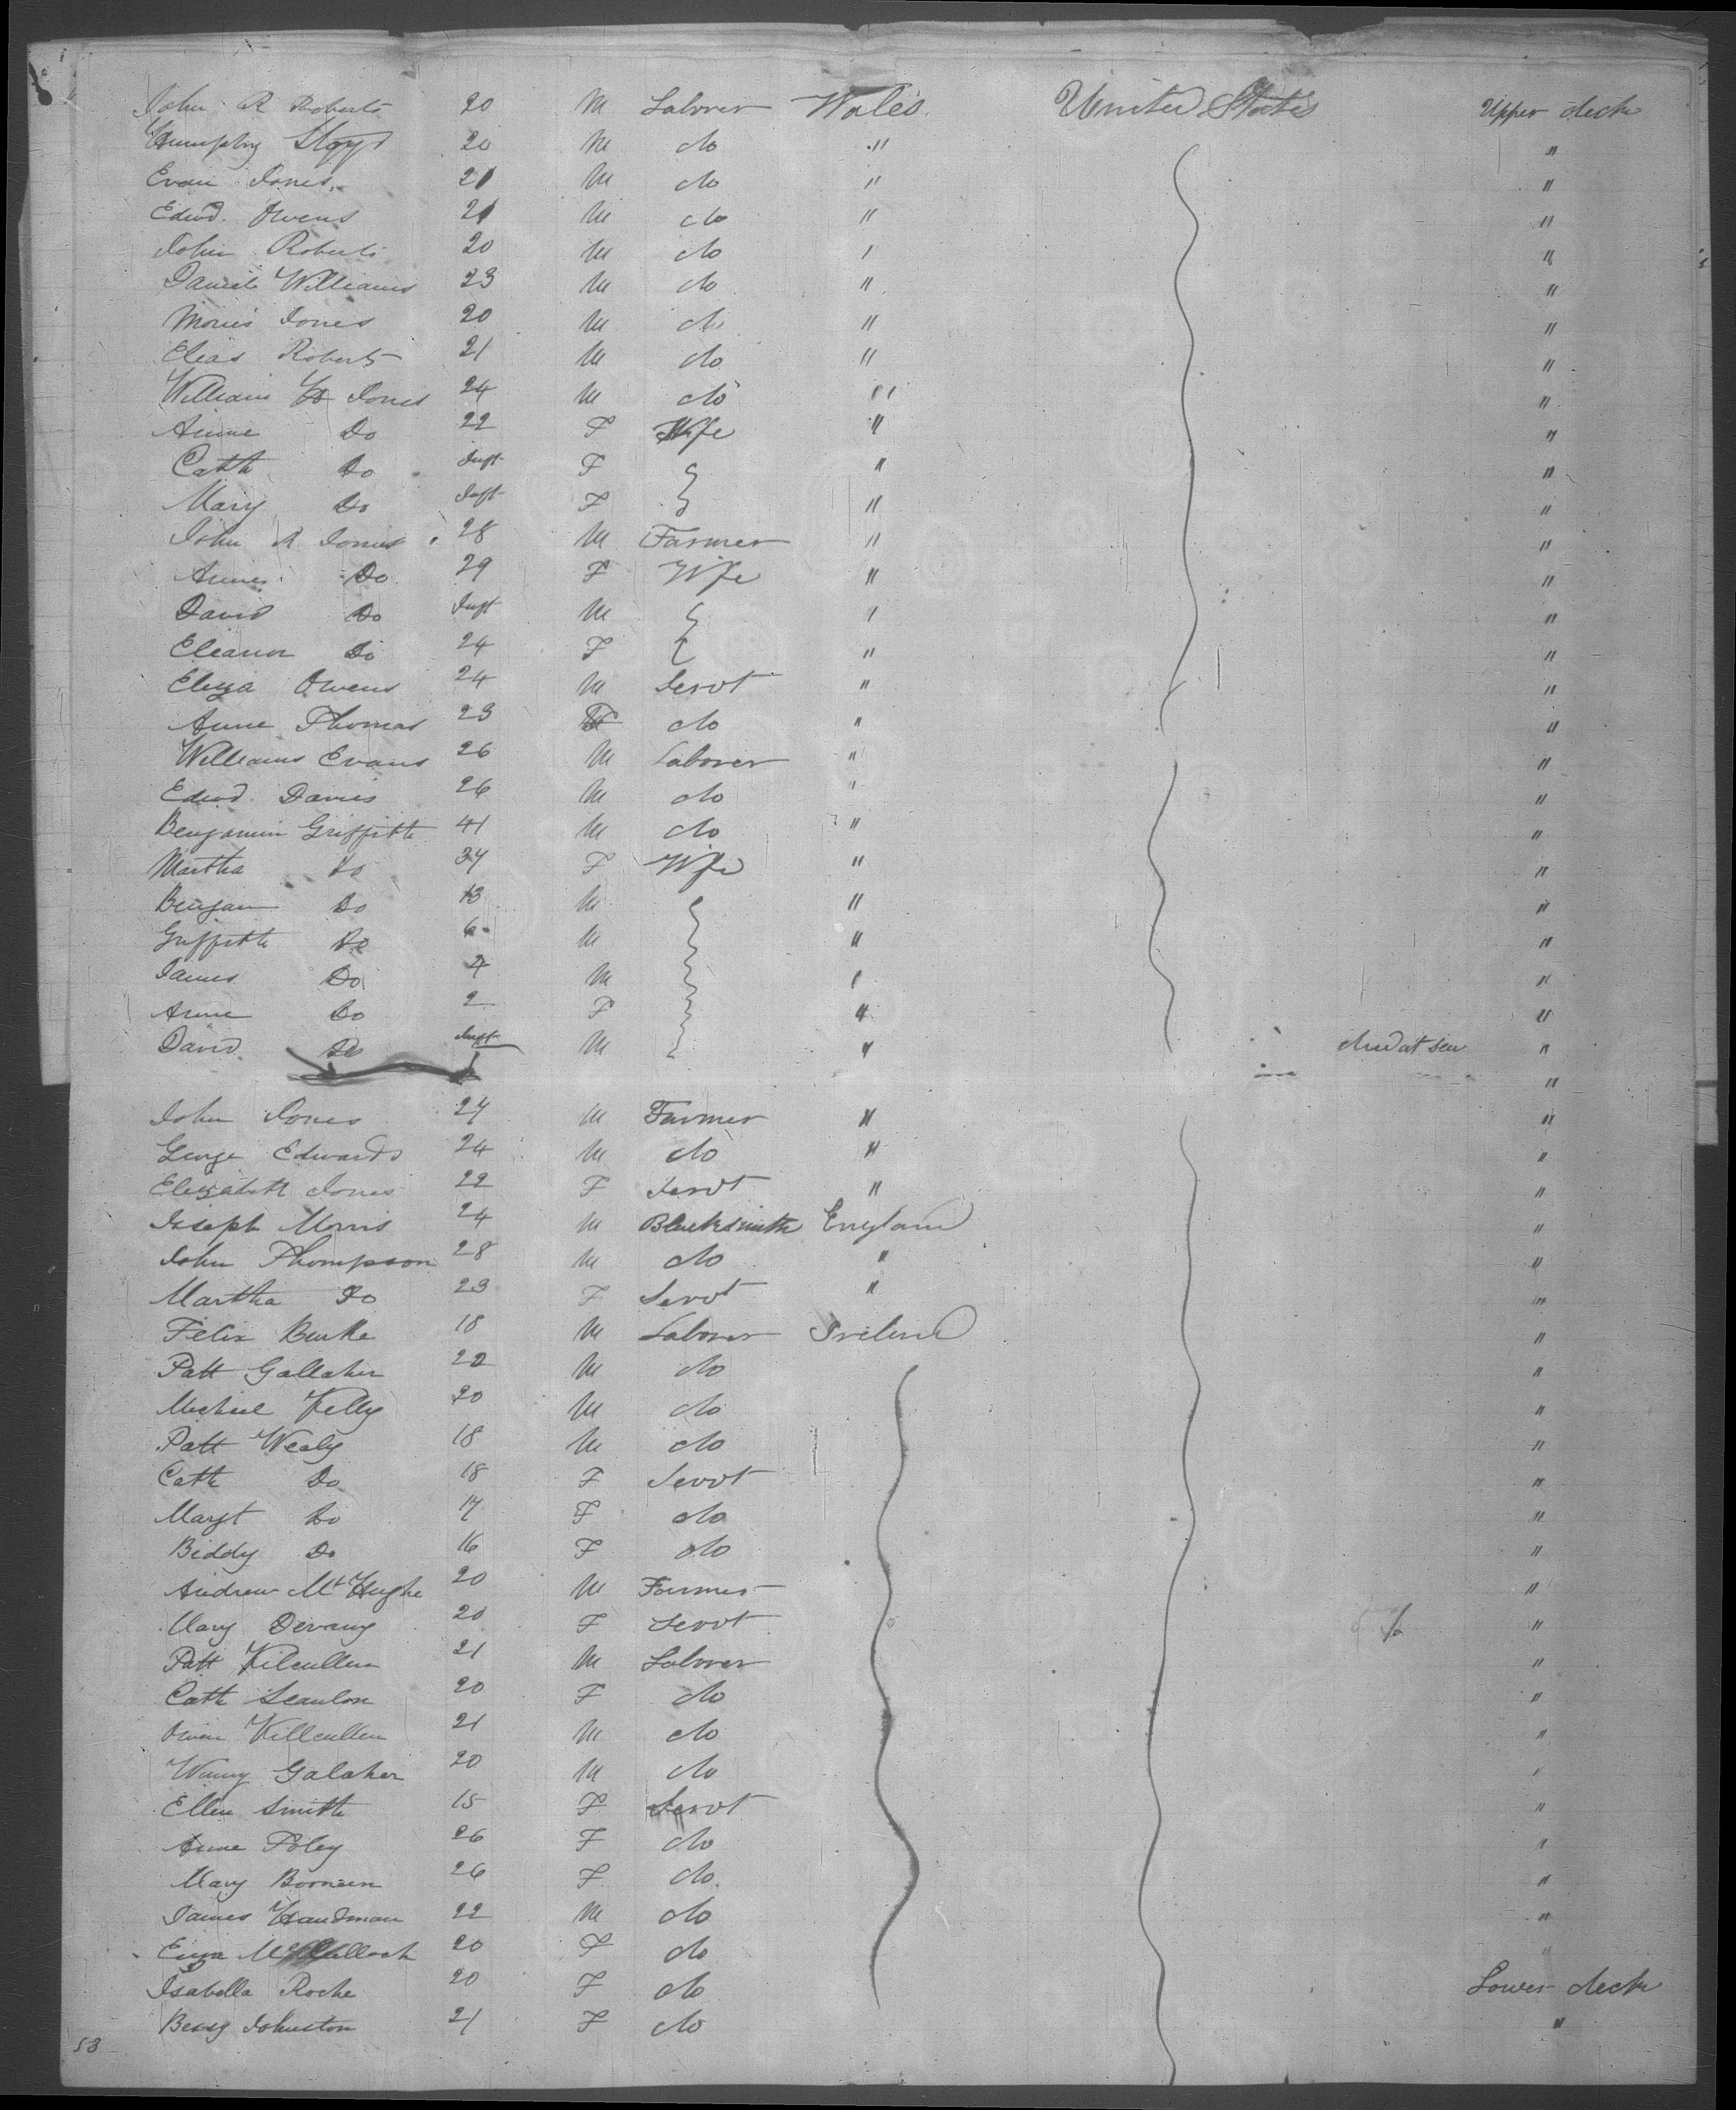 John R Roberts 20 M Laborer Wales. United States Upper deck
Humphry Lloyd 20 M do " "
Evan Jones 21 M do " "
Edwd. Owens 21 M do " "
John Roberts 20 M do " "
Daniel Williams 23 M do " "
Morris Jones 20 M do " "
Elias Roberts 21 M do " "
William H Jones 24 M do " "
Anne Do 22 F Wife " "
Cath Do Inft F " "
Mary Do Inft F " "
John R Jones 28 M Farmer " "
Anne Do 29 F Wife " "
David Do Inft M " "
Eleanor Do 24 F " "
Eliza Owens 24 M Servt " "
Anne Thomas 23 F do " "
Williams Evans 26 M Laborer " "
Edwd. Davies 26 M do " "
Benjamin Griffith 41 M do " "
Martha Do 37 F Wife " "
Benjam Do 13 M " "
Griffith Do 6 M " "
James Do 4 M " "
Anne Do 2 F " "
David Do Inft M " died at sea "
"
John Jones 27 M Farmer " "
George Edwards 24 M do " "
Elizabeth Jones 22 F Servt " "
Joseph Morris 24 M Blacksmith England "
John Thompson 28 M do " "
Martha Do 23 F Servt " "
Felix Burke 18 M Laborer Ireland "
Patt Gallaher 22 M do "
Michael Kelly 20 M do "
Patt Wealy 18 M do "
Cath Do 18 F Servt "
Margt Do 17 F do "
Biddy Do 16 F do "
Andrew McHughe 20 M Farmer "
Mary Devany 20 F Servt "
Patt Kilcullen 21 M Laborer "
Cath Scanlon 20 F do "
Owen Killcullen 21 M do "
Winny Galaher 20 M do "
Ellen Smith 15 F Servt "
Anne Foley 26 F do "
Mary 26 F do. "
James Handman 22 M do "
20 F do "
Isabella Roche 20 F do Lower deck
Bessy Johnston 21 F do "
58